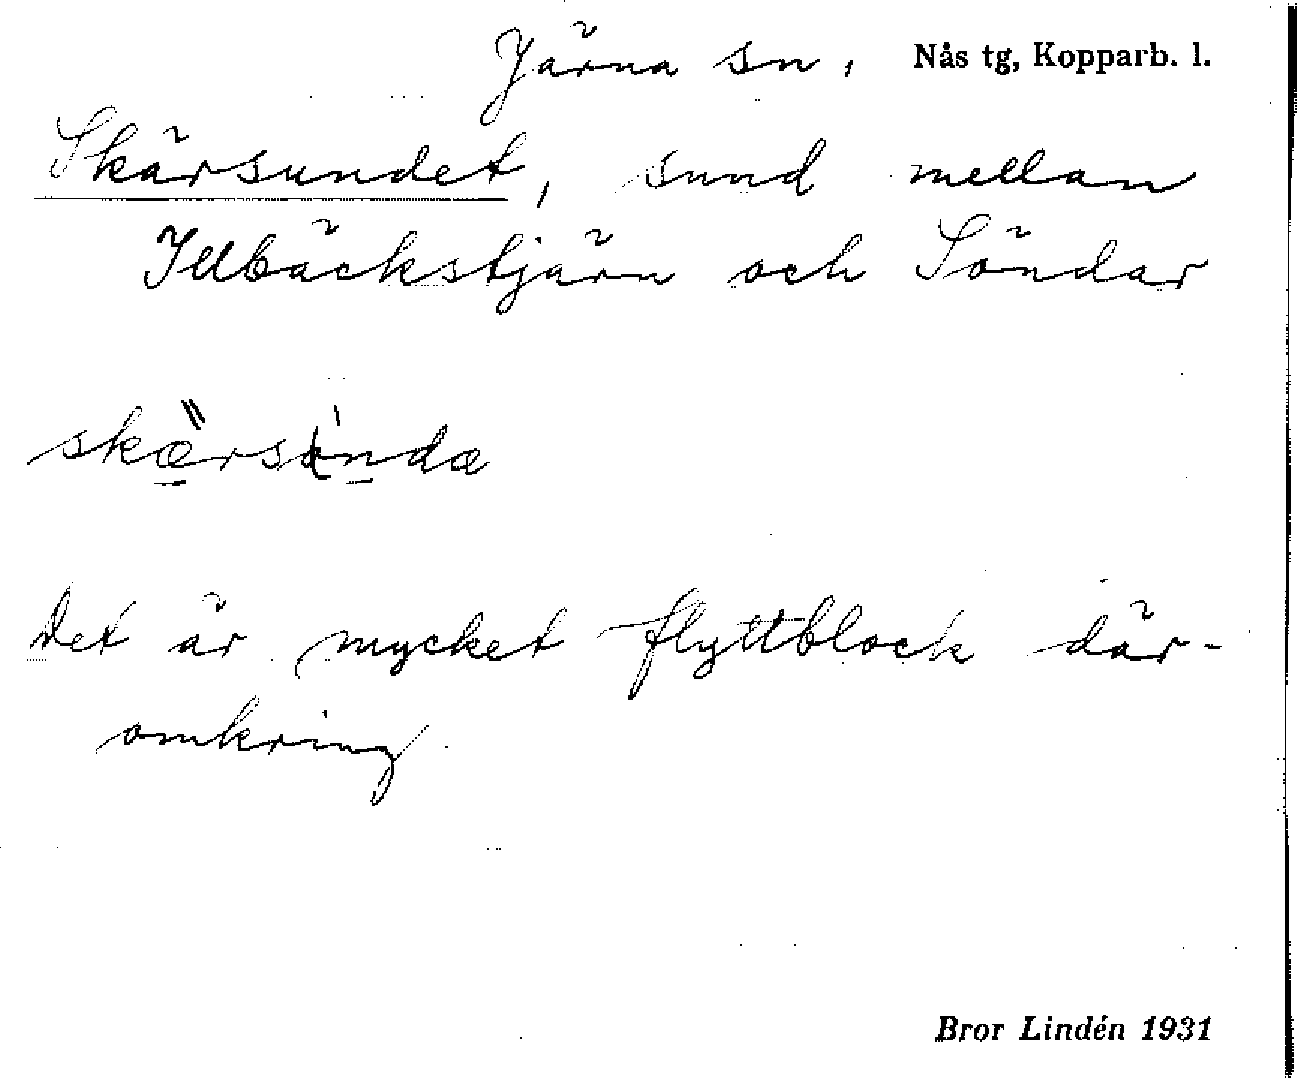 Järna sn, Nås tg, Kopparb. l.
Skärsundet, sund mellan
Illbäckstjärn och Söndar
Det är mycket flyttblock där-
omkring
Bror Lindén 1931